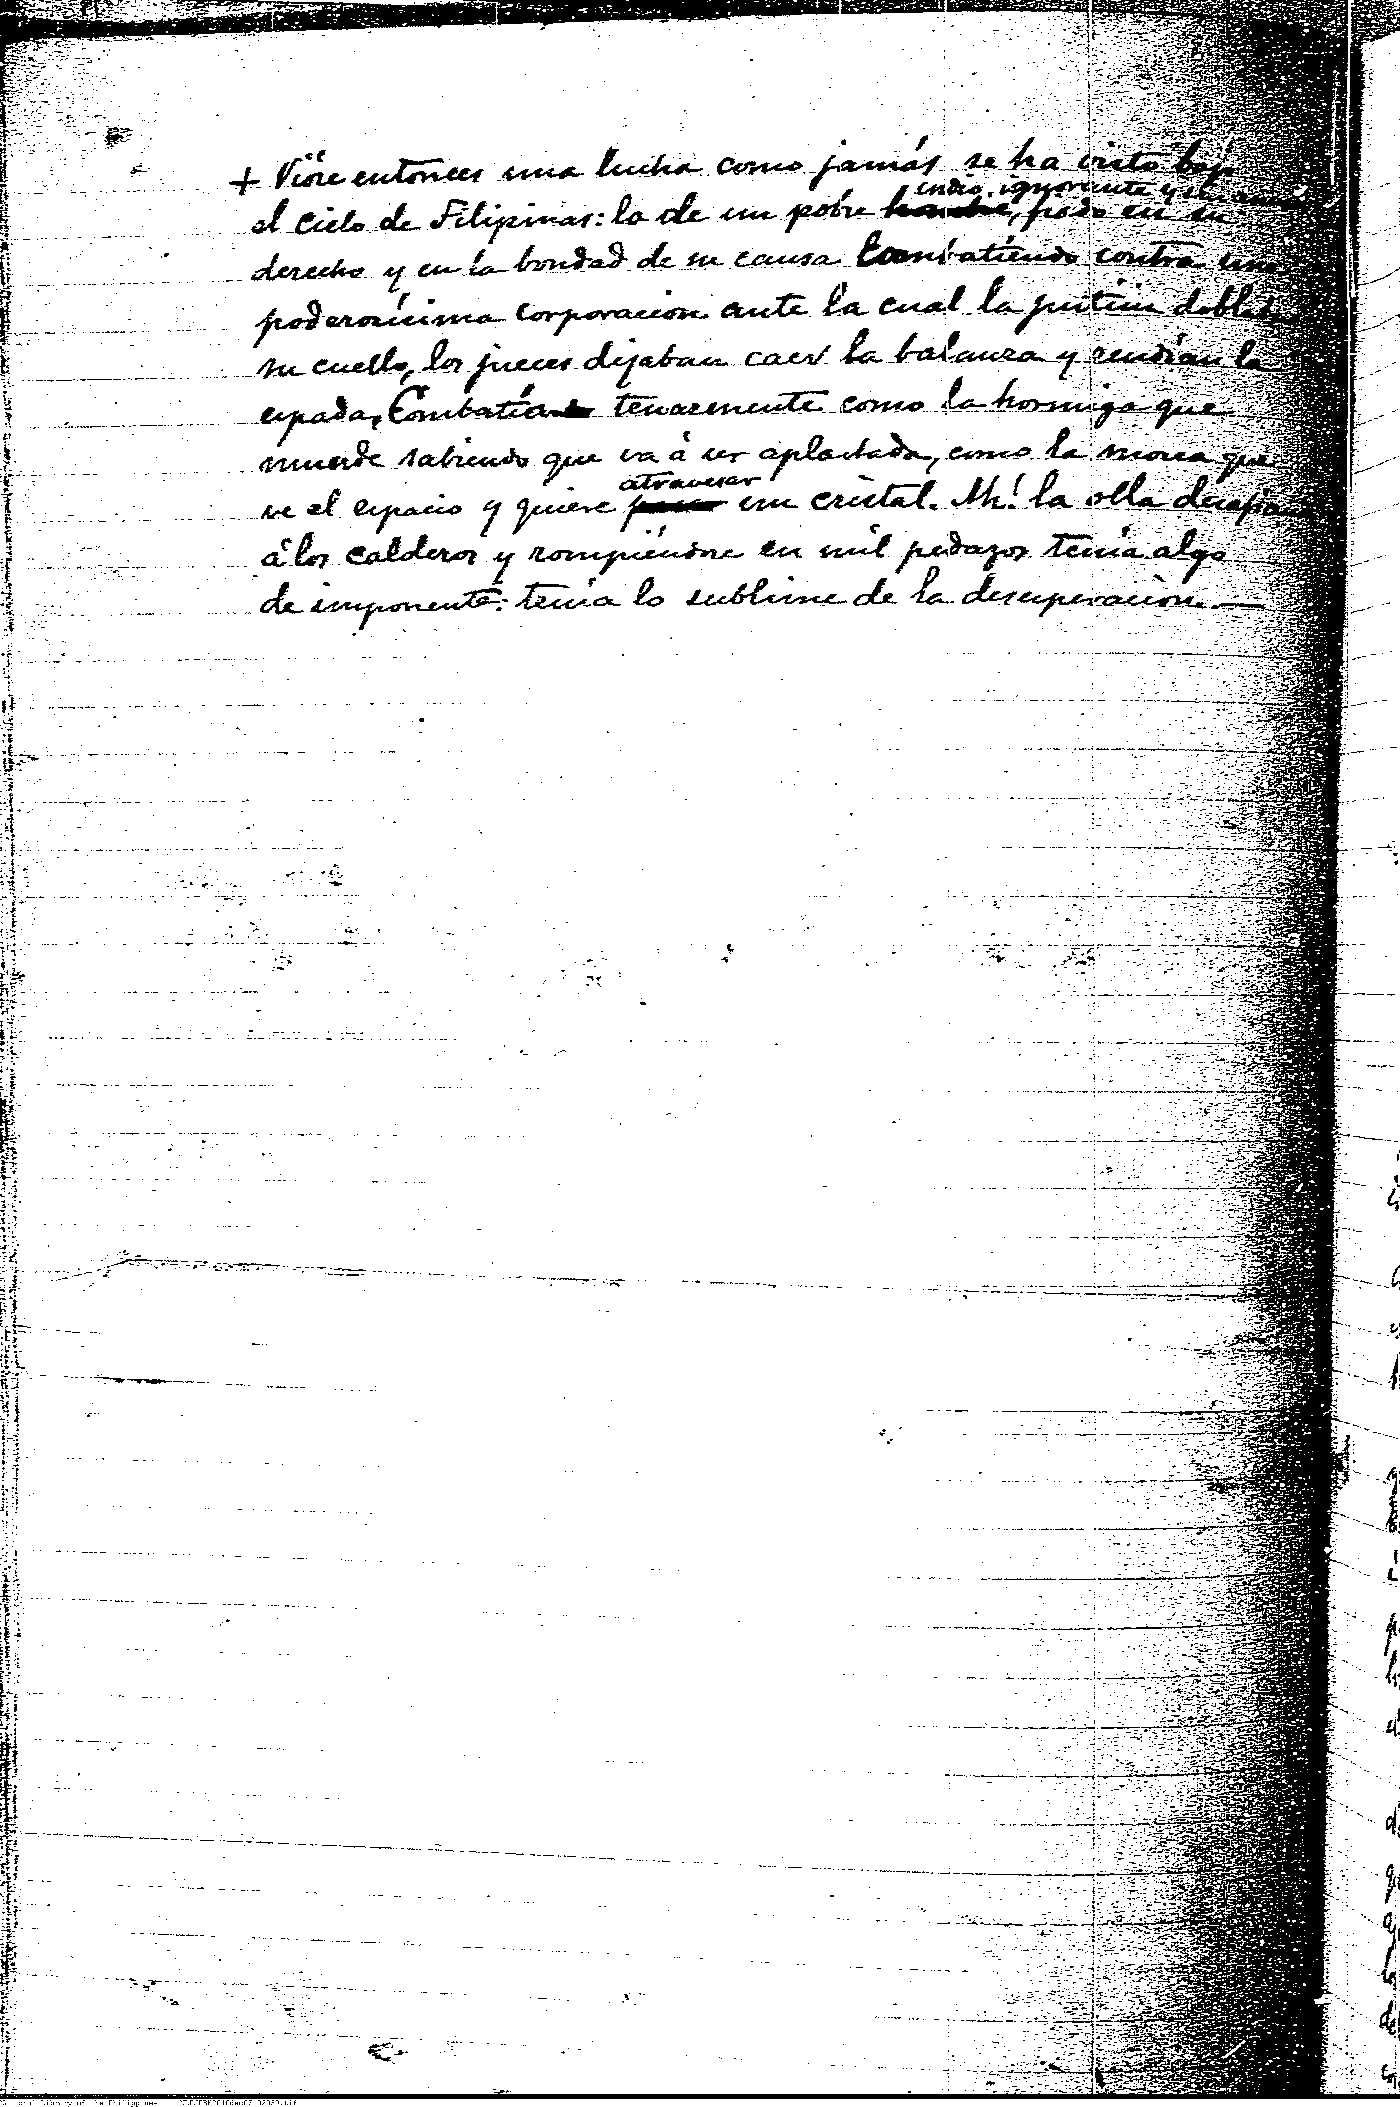 + Vióse entonces una lucha como jamás se ha visto bajo
indio, ignorante y sin amigos
el cielo de Filipinas: la de un pobre hombre, fiado en su
derecho y en la bondad de su causa combatiendo contra una
poderosísima corporacion ante la cual la justicia doblaba
su cuello, los jueces dejaban caer la balanza y rendían la
espada. Combatía tenazmente como la hormiga que
muerde sabiendo que va á ser aplastada, como la mosca que
atravesar
ve el espacio y quiere pasar un cristal. Ah! la olla desafiando
á los calderos y rompiéndose en mil pedazos tenía algo
de imponente: tenía lo sublime de la desesperacion.—